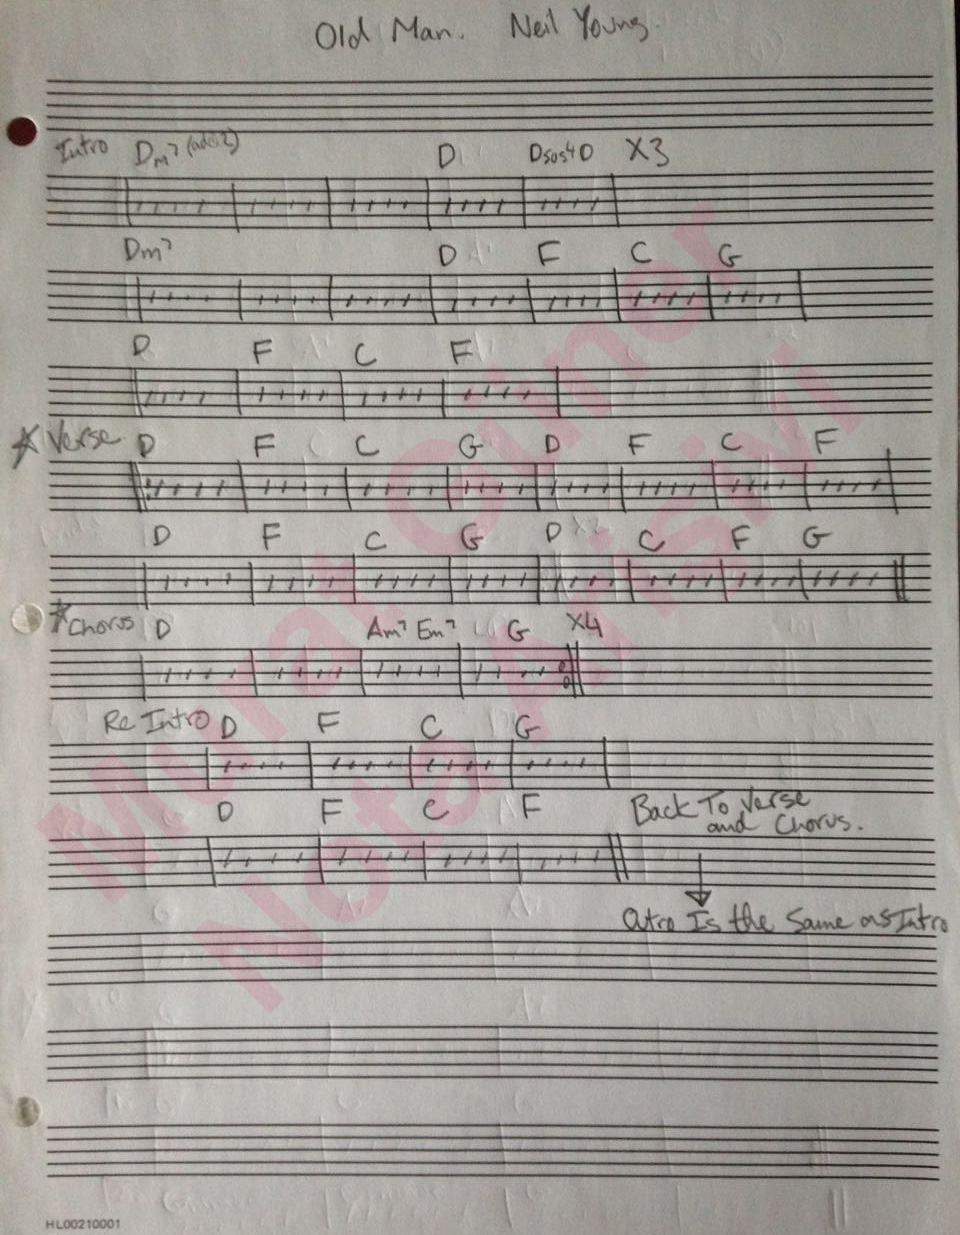 Old Man. Neil Young.
Intro Dm7 (add2) D Dsus4 D X3
Dm7 D F C G
D F C F
* Verse D F C G D F C F
D F C G D C F G
* Chorus D Am7 Em7 G X4
Re Intro D F C G
D F C F Back To Verse
and Chorus.
Outro Is the Same as Intro
Murat Güner
Nota Arşivi
HL00210001